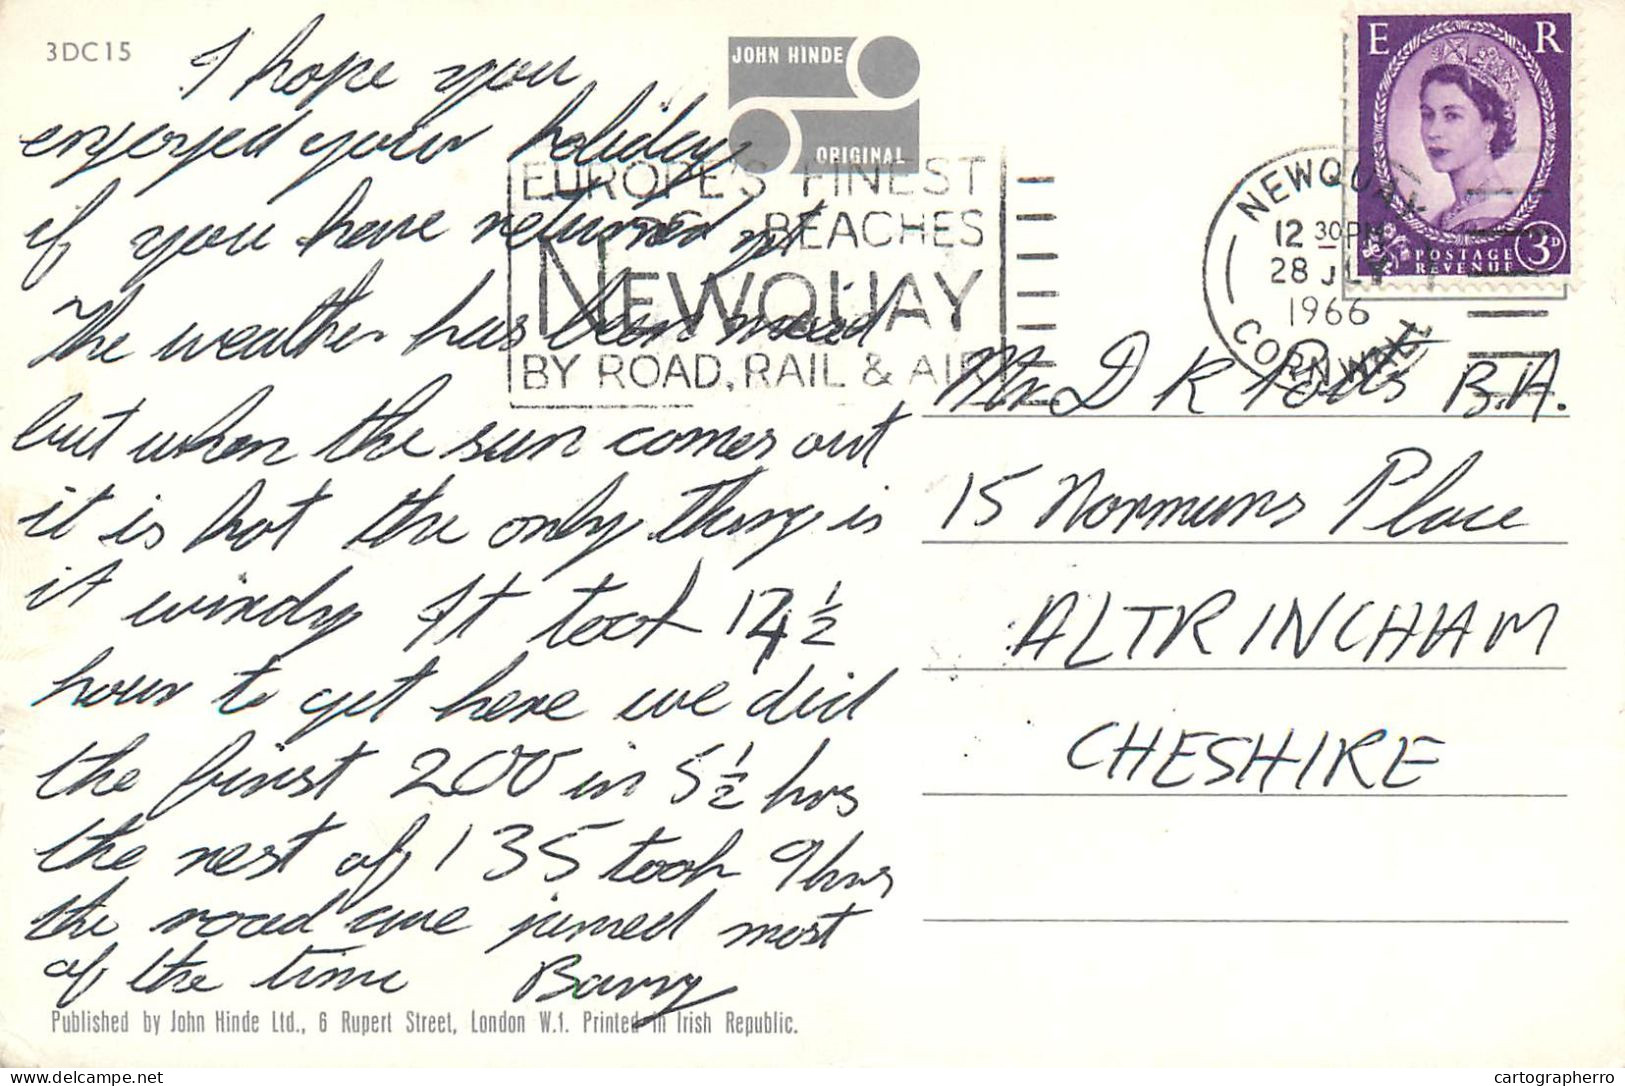 3DC15
I hope you
enjoyed your holiday
if you have returned yet
The weather has been mixed
but when the sun comes out
it is hot the only thing is
it windy It took 14 ½
hour to get here we did
the first 200 in 5 ½ hrs
the rest of 135 took 9 hrs
the road are jamed most
of the time Barry
Published by John Hinde Ltd., 6 Rupert Street, London W.1. Printed in Irish Republic.
JOHN HINDE
ORIGINAL
EUROPE'S FINEST
BEACHES
NEWQUAY
BY ROAD, RAIL & AIR
NEWQUAY
12 30 PM
28
1966
CORNWALL
E R
POSTAGE
REVENUE
3D
Mr D K Potts B.A.
15 Normans Place
ALTRINCHAM
CHESHIRE
www.delcampe.net
cartographerro